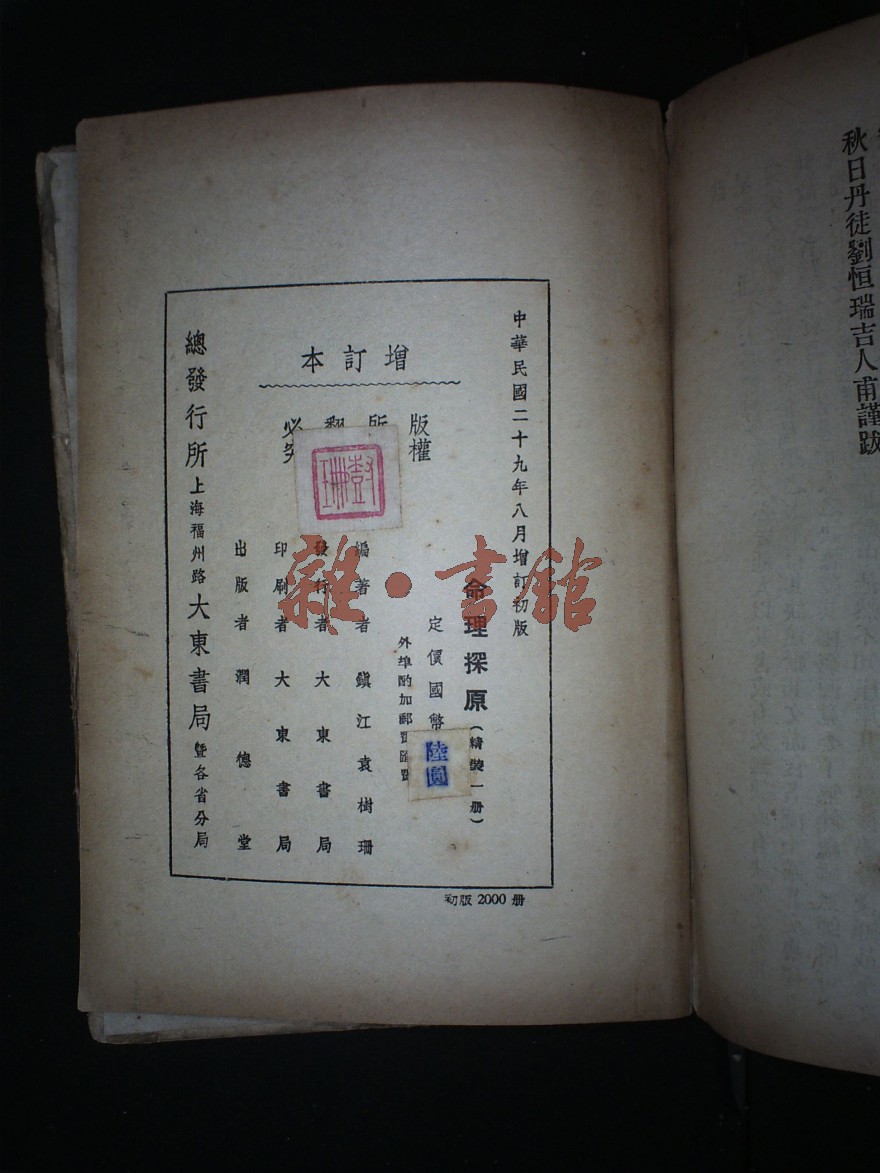 秋日丹徒劉恒瑞吉人甫謹跋
中華民國二十九年八月增訂初版
增訂本
版權所翻必究
命理探原(精裝一册)
定價國幣
陸圓
外埠酌加郵費匯費
樹珊
編著者 鎮江袁樹珊
發行者 大東書局
印刷者 大東書局
出版者 潤德堂
總發行所 上海福州路 大東書局 暨各省分局
初版 2000 册
雜·書館